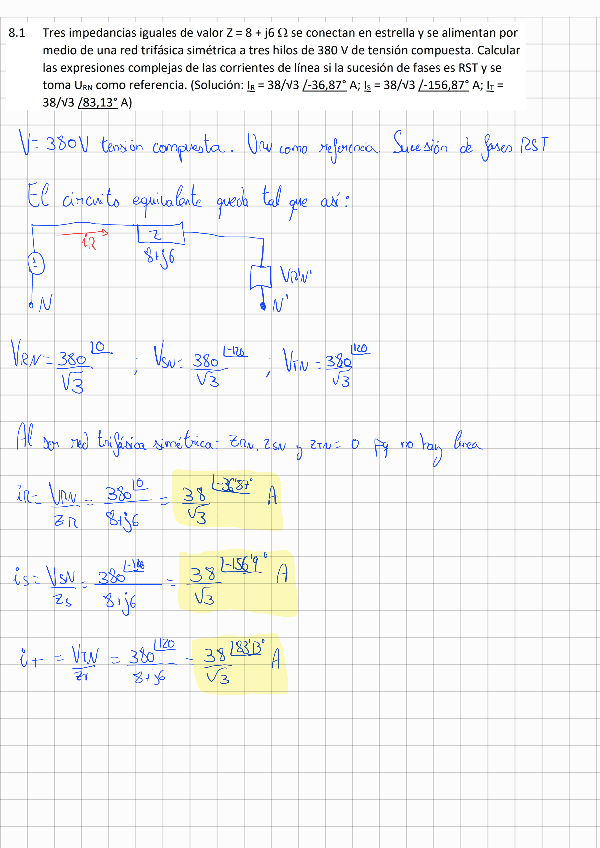 8.1 Tres impedancias iguales de valor Z = 8 + j6 Ω se conectan en estrella y se alimentan por
medio de una red trifásica simétrica a tres hilos de 380 V de tensión compuesta. Calcular
las expresiones complejas de las corrientes de línea si la sucesión de fases es RST y se
toma U_RN como referencia. (Solución: I_R = 38/√3 /-36,87° A; I_S = 38/√3 /-156,87° A; I_T =
38/√3 /83,13° A)
V = 380V tensión compuesta. Urn como referencia Sucesión de fases RST
El circuito equivalente queda tal que así:
iR
Z
8+j6
VR'N'
N
N'
VRN = 380/√3 |0 ; VSN = 380/√3 |-120 ; VTN = 380/√3 |120
Al ser red trifásica simétrica: ZRN, ZSN y ZTN = 0 pq no hay línea
iR = VRN/ZR = 380|0/8+j6 = 38/√3 |-36'87° A
iS = VSN/ZS = 380|-120/8+j6 = 38/√3 |-156'9° A
iT = VTN/ZT = 380|120/8+j6 = 38/√3 |83'13° A